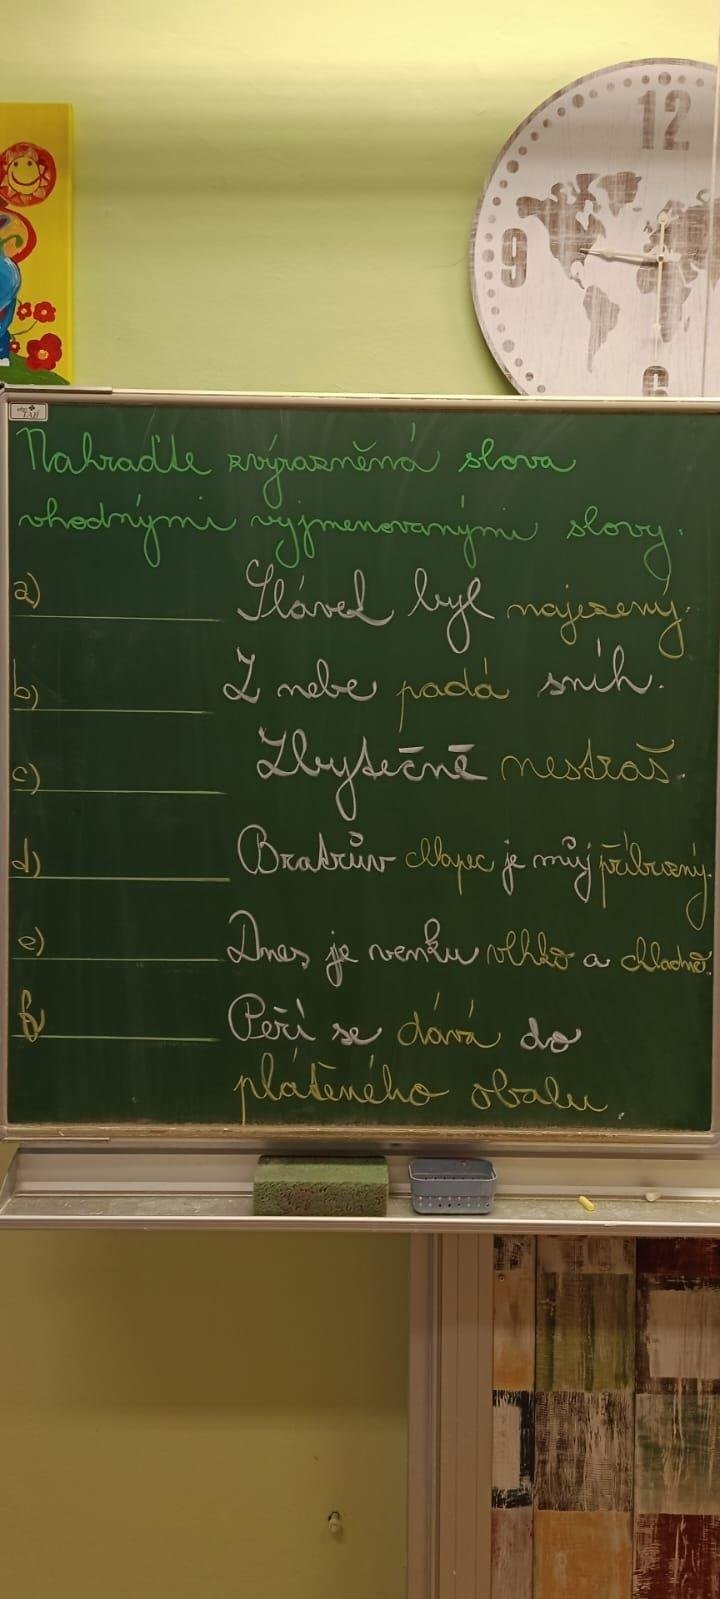 12
9
6
TABI
Nahraďte zvýrazněná slova
vhodnými vyjmenovanými slovy.
a) Slávek byl najezený.
b) Z nebe padá sníh.
c) Zbytečně nestraš.
d) Bratrův chlapec je můj příbuzný.
e) Dnes je venku vlhko a chladno.
f) Peří se dává do
plátěného obalu.